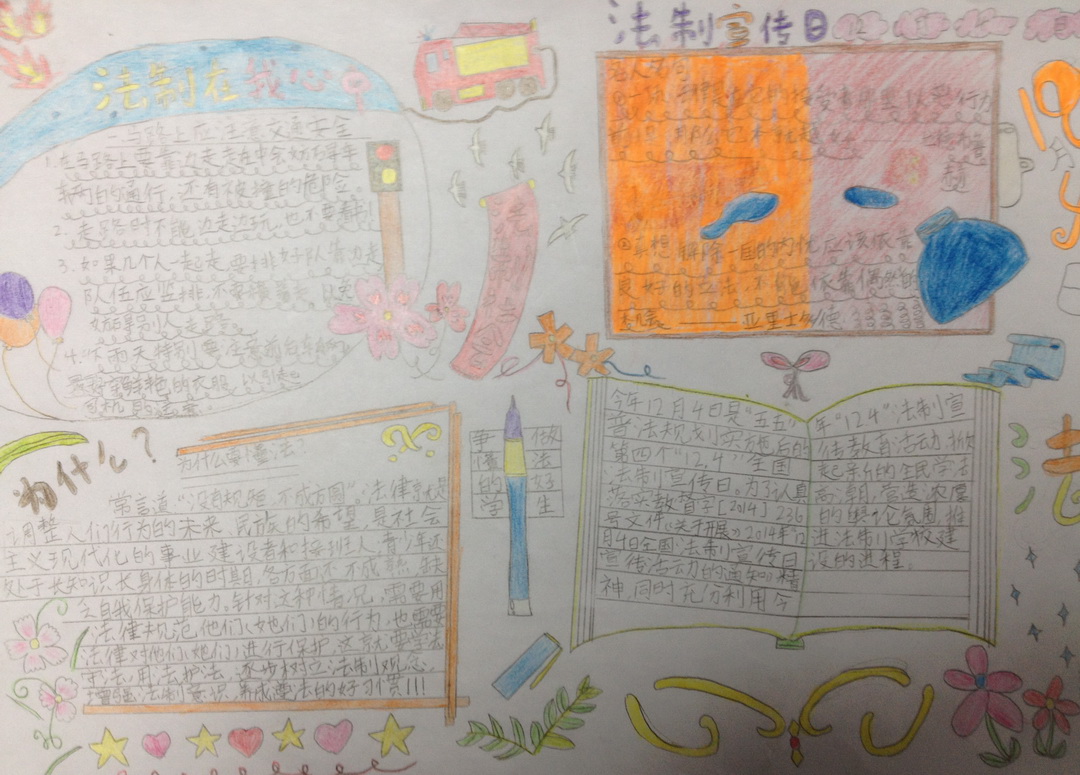 法制在我心
马路上应注意交通安全
1.在马路上要靠边走走在中会妨碍
车辆的通行,还有被撞的危险。
2.走路时不能边走边玩,也不要看书!
3.如果几个人一起走,要排好队靠边走
队伍应竖排,不要横着走,以免
妨碍别人走路。
4.下雨天特别要注意前后车辆
穿鲜艳的衣服,以引起
司机的注意。
法制宣传日
名人名句
②真想解除一国的内忧应该依靠
良好的立法,不能依靠偶然的
机会——亚里士多德
为什么?
为什么要懂法?
常言道“没有规矩,不成方圆”。法律
调整人们行为的未来,民族的希望,是社会
主义现代化的事业,建设者和接班人,青少年还
处于长知识长身体的时期,各方面还不成熟,缺
乏自我保护能力。针对这种情况,需要用
法律规范他们(她们)的行为,也需要
法律对他们(她们)进行保护,这就要学法
守法,用法护法,逐步树立法制观念,
增强法制意识,养成懂法的好习惯!!!
争做
懂法
的好
学生
今年12月4日是“五五”
普法规划实施后的
第四个“12.4”全国
法制宣传日。为了认真
落实教督字[2014]236
号文件《关于开展》2014年12
月4日全国法制宣传日
宣传活动的通知》精
神,同时充分利用今
年“12.4”法制宣
传教育活动,掀
起新的全民学法
高潮,营造浓厚
的舆论氛围,推
进法制学校建
设的进程。